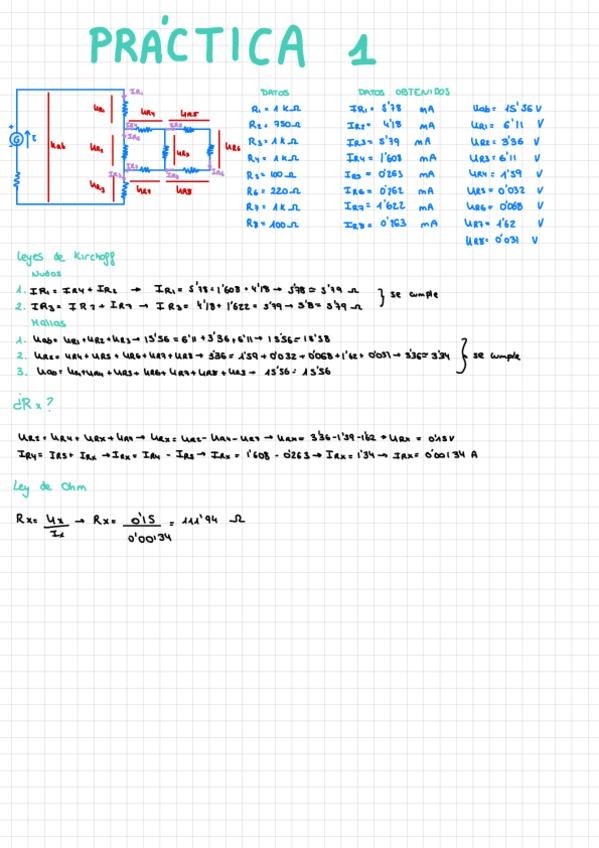 PRÁCTICA 1
DATOS
R1 = 1 KΩ
R2 = 750Ω
R3 = 1 KΩ
R4 = 1 KΩ
R5 = 100Ω
R6 = 220Ω
R7 = 1 KΩ
R8 = 100Ω
DATOS OBTENIDOS
IR1 = 5'78 mA
IR2 = 4'18 mA
IR3 = 5'79 mA
IR4 = 1'608 mA
IR5 = 0'263 mA
IR6 = 0'262 mA
IR7 = 1'622 mA
IR8 = 0'263 mA
Uab = 15'56 V
UR1 = 6'11 V
UR2 = 3'36 V
UR3 = 6'11 V
UR4 = 1'59 V
UR5 = 0'032 V
UR6 = 0'068 V
UR7 = 1'62 V
UR8 = 0'031 V
Leyes de Kirchoff
Nudos
1. IR1 = IR4 + IR2 → IR1 = 5'78 = 1'608 + 4'18 → 5'78 ≃ 5'79 Ω
2. IR3 = IR2 + IR7 → IR3 = 4'18 + 1'622 = 5'79 → 5'8 ≃ 5'79 Ω
} se cumple
Mallas
1. Uab = UR1 + UR2 + UR3 → 15'56 = 6'11 + 3'36 + 6'11 → 15'56 = 15'58
2. UR2 = UR4 + UR5 + UR6 + UR7 + UR8 → 3'36 = 1'59 + 0'032 + 0'068 + 1'62 + 0'031 → 3'36 ≃ 3'34
3. Uab = UR1 + UR4 + UR5 + UR6 + UR7 + UR8 + UR3 → 15'56 = 15'56
} se cumple
¿Rx?
UR2 = UR4 + URX + UR7 → URX = UR2 - UR4 - UR7 → URX = 3'36 - 1'59 - 1'62 → URX = 0'15 V
IR4 = IR5 + IRX → IRX = IR4 - IR5 → IRX = 1'608 - 0'263 → IRX = 1'34 → IRX = 0'00134 A
Ley de Ohm
Rx = Ux / Ix → Rx = 0'15 / 0'00134 = 111'94 Ω